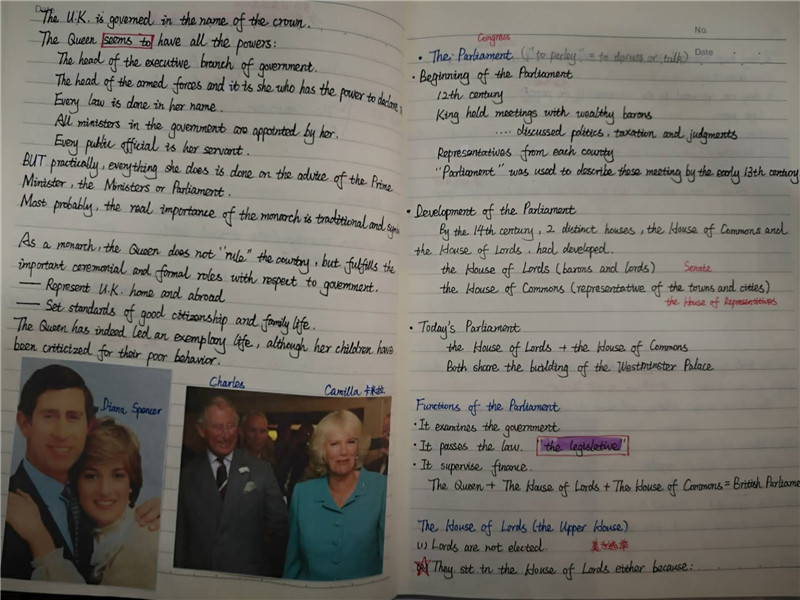 Date
The U.K. is governed in the name of the crown.
The Queen seems to have all the powers:
The head of the executive branch of government.
The head of the armed forces and it is she who has the power to declare
Every law is done in her name.
All ministers in the government are appointed by her.
Every public official is her servant.
BUT practically, everything she does is done on the advice of the Prime
Minister, the Ministers or Parliament.
Most probably, the real importance of the monarch is traditional and
As a monarch, the Queen does not "rule" the country, but fulfills the
important ceremonial and formal roles with respect to government.
— Represent U.K. home and abroad
— Set standards of good citizenship and family life.
The Queen has indeed led an exemplary life, although her children have
been criticized for their poor behavior.
Diana Spencer
Charles
Camilla 卡米拉
No.
Date
Congress
· The Parliament ("to parley" = to discuss or talk)
· Beginning of the Parliament
12th century
King held meetings with wealthy barons
.... discussed politics, taxation and judgments
Representatives from each county
"Parliament" was used to describe these meeting by the early 13th century
· Development of the Parliament
By the 14th century, 2 distinct houses, the House of Commons and
the House of Lords, had developed.
the House of Lords (barons and lords) Senate
the House of Commons (representative of the towns and cities)
the House of Representatives
· Today's Parliament
the House of Lords + the House of Commons
Both share the building of the Westminster Palace
Functions of the Parliament
· It examines the government
· It passes the law. "the legislative"
· It supervise finance.
The Queen + The House of Lords + The House of Commons = British Parliame
The House of Lords (the Upper House)
(1) Lords are not elected
They sit in the House of Lords either because: